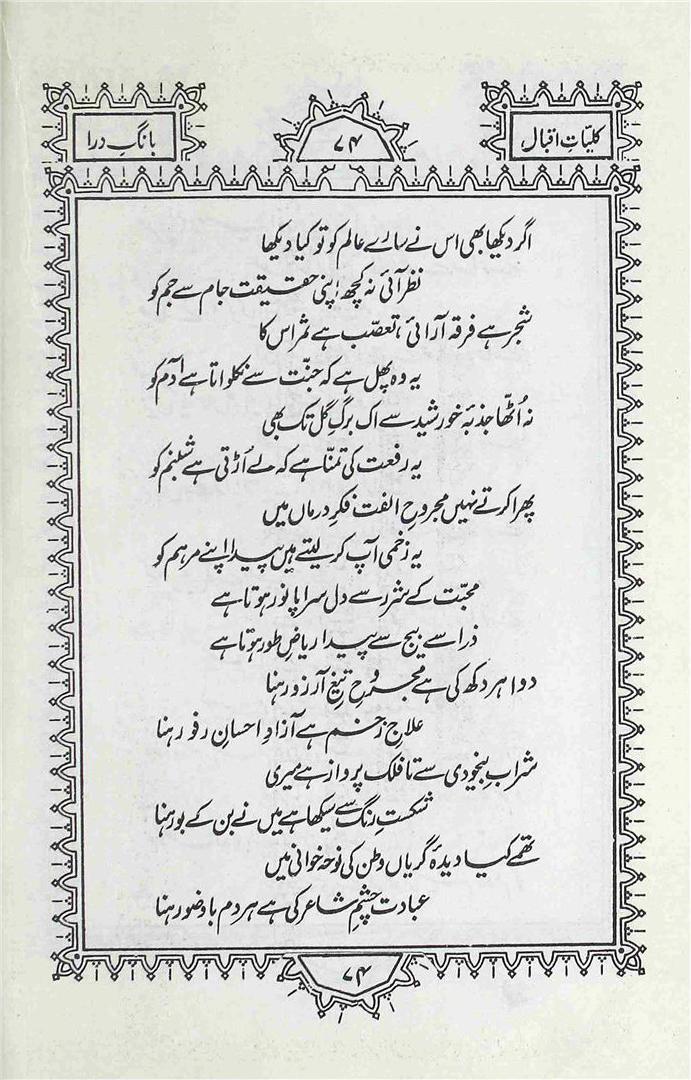 کلیّاتِ اقبال
۷۴
بانگِ درا
اگر دیکھا بھی اس نے سارے عالم کو تو کیا دیکھا
نظر آئی نہ کچھ اپنی حقیقت جام سے جم کو
شجر ہے فرقہ آرائی، تعصّب ہے ثمر اس کا
یہ وہ پھل ہے کہ جنّت سے نکلواتا ہے آدم کو
نہ اُٹھا جذبۂ خورشید سے اک برگِ گل تک بھی
یہ رفعت کی تمنّا ہے کہ لے اُڑتی ہے شبنم کو
پھرا کرتے نہیں مجروحِ الفت فکرِ درماں میں
یہ زخمی آپ کر لیتے ہیں پیدا اپنے مرہم کو
محبّت کے شرر سے دل سراپا نور ہوتا ہے
ذرا سے بیج سے پیدا ریاضِ طور ہوتا ہے
دوا ہر دکھ کی ہے مجروحِ تیغِ آرزو رہنا
علاجِ زخم ہے آزادِ احسانِ رفو رہنا
شرابِ بیخودی سے تا فلک پرواز ہے میری
شکستِ رنگ سے سیکھا ہے میں نے بن کے بو رہنا
تھمے کیا دیدۂ گریاں وطن کی نوحہ خوانی میں
عبادت چشمِ شاعر کی ہے ہر دم باوضو رہنا
۷۴